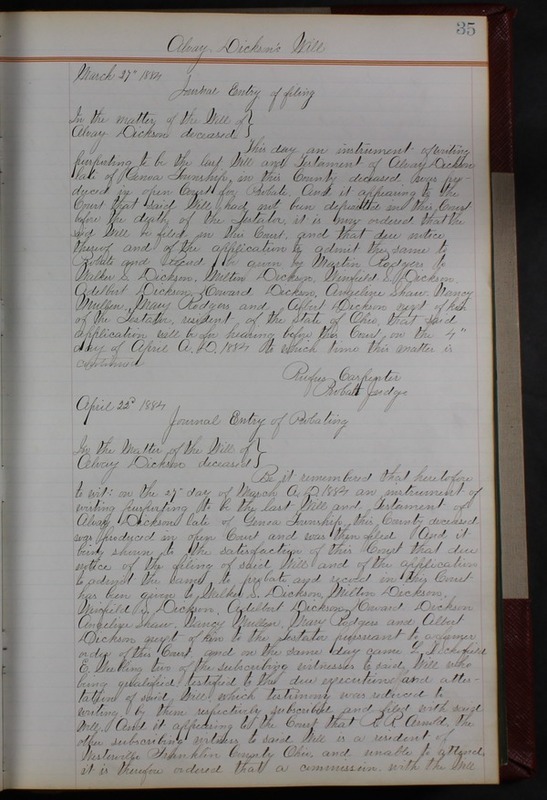 35
Alvay Dickson's Will
March 27" 1884
Journal Entry of filing
In the matter of the Will of
Alvay Dickson deceased
This day an instrument of writing
purporting to be the last Will and Testament of Alvay Dickson
late of Genoa Township, in this County deceased was pro-
duced in open Court for Probate. And it appearing to the
Court that said Will had not been deposited in this Court
before the death of the Testator, it is now ordered that the
said Will be filed in this Court, and that due notice
thereof and of the application to admit the same to
Probate and record be given by Martin Rodgers to
Walker S. Dickson, Milton Dickson, Winfield S. Dickson,
Adelbert Dickson, Howard Dickson, Angeline Shaw, Nancy
Mullen, Mary Rodgers and Albert Dickson next of kin
of the Testator, resident of the State of Ohio, that said
application will be for hearing before this Court on the 4"
day of April A.D. 1884 to which time this matter is
continued
Rufus Carpenter
Probate Judge
April 22d 1884
Journal Entry of Probating
In the Matter of the Will of
Alvay Dickson deceased
Be it remembered that heretofore
to wit: on the 27" day of March A.D. 1884 an instrument of
writing purporting to be the last Will and Testament of
Alvay Dickson late of Genoa Township, this County deceased
was produced in open Court and was then filed And it
being shown to the satisfaction of this Court that due
notice of the filing of said Will and of the application
to admit the same to probate and record in this Court
has been given to Walker S. Dickson, Milton Dickson,
Winfield S. Dickson, Adelbert Dickson, Howard Dickson
Angeline Shaw, Nancy Mullen, Mary Rodgers and Albert
Dickson next of kin to the Testator pursuant to a former
order of this Court, and on the same day came
E. two of the subscribing witnesses to said Will who
being qualified testified to the due execution and attes-
tation of said Will which testimony was reduced to
writing by them respectively subscribed and filed with said
Will. And it appearing to the Court that R. R. Arnold the
other subscribing witness to said Will is a resident of
Westerville Franklin County Ohio, and unable to attend
it is therefore ordered that a commission with the Will